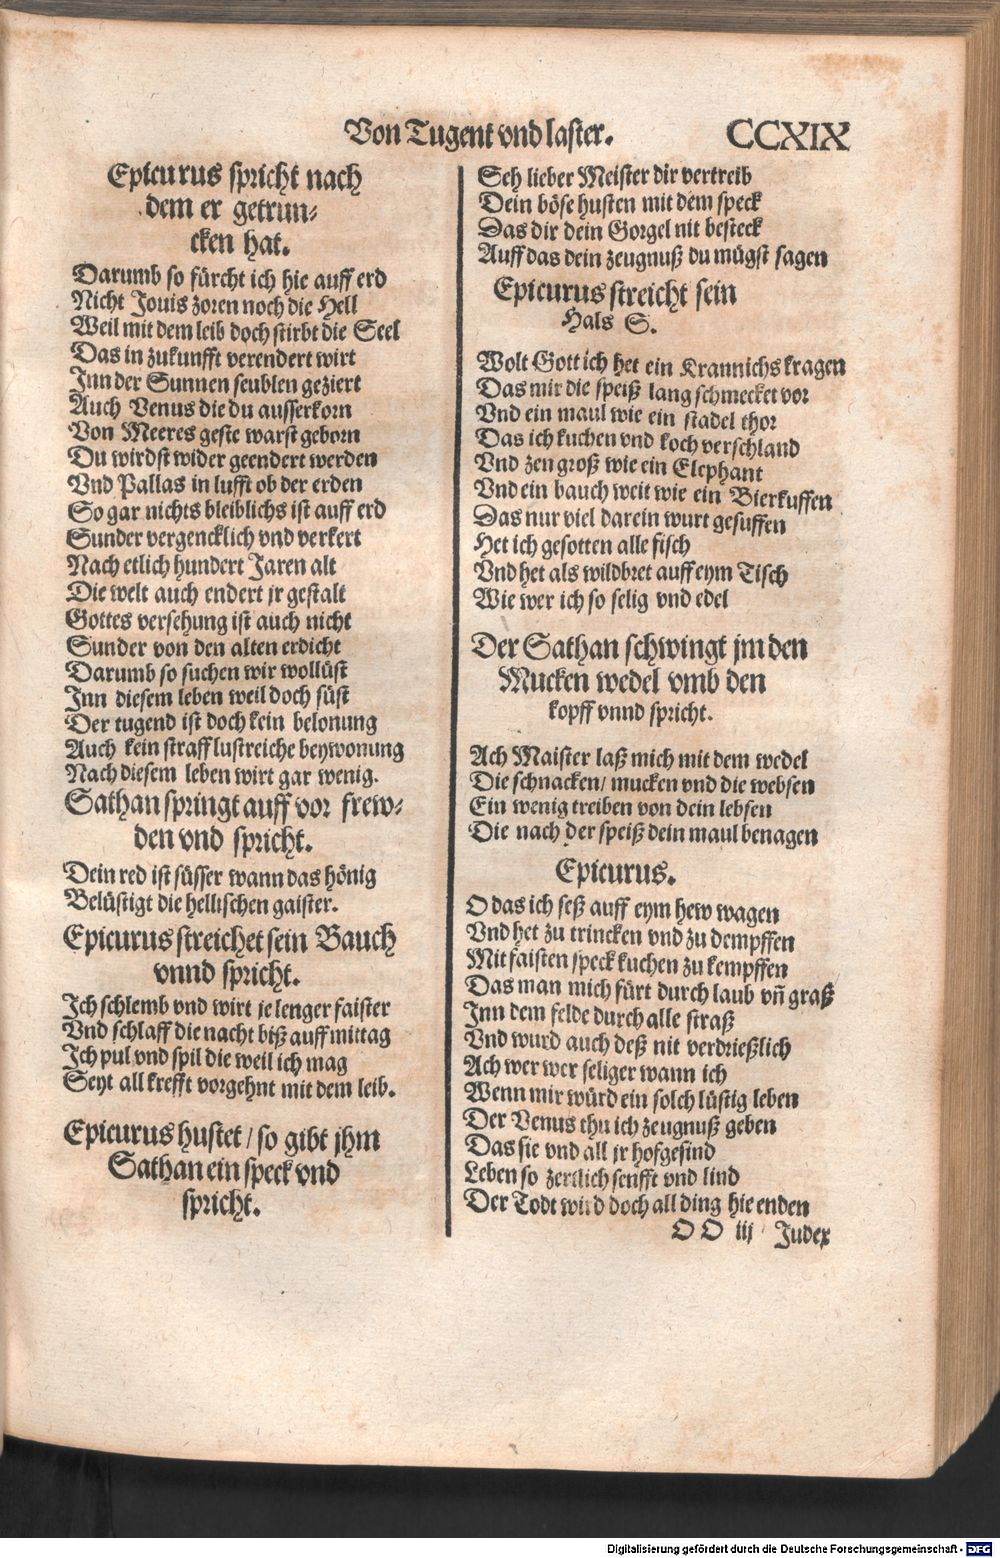 Von Tugent vnd laster. CCXIX
Epicurus spricht nach
dem er getrun⸗
cken hat.
Darumb so fürcht ich hie auff erd
Nicht Jouis zoren noch die Hell
Weil mit dem leib doch stirbt die Seel
Das in zukunfft verendert wirt
Inn der Sunnen seublen geziert
Auch Venus die du ausserkorn
Von Meeres geste warst geborn
Du wirdst wider geendert werden
Vnd Pallas in lufft ob der erden
So gar nichts bleiblichs ist auff erd
Sunder vergencklich vnd verkert
Nach etlich hundert Jaren alt
Die welt auch endert jr gestalt
Gottes versehung ist auch nicht
Sunder von den alten erdicht
Darumb so suchen wir wollüst
Inn diesem leben weil doch süst
Der tugend ist doch kein belonung
Auch kein straff lustreiche beywonung
Nach diesem leben wirt gar wenig.
Sathan springt auff vor frew⸗
den vnd spricht.
Dein red ist süsser wann das hönig
Belüstigt die hellischen gaister.
Epicurus streichet sein Bauch
vnnd spricht.
Ich schlemb vnd wirt je lenger faister
Vnd schlaff die nacht biß auff mittag
Ich pul vnd spil die weil ich mag
Seyt all krefft vorgehnt mit dem leib.
Epicurus hustet / so gibt jhm
Sathan ein speck vnd
spricht.
Seh lieber Meister dir vertreib
Dein böse husten mit dem speck
Das dir dein Gorgel nit besteck
Auff das dein zeugnuß du mügst sagen
Epicurus streicht sein
Hals S.
Wolt Gott ich het ein Krannichs kragen
Das mir die speiß lang schmecket vor
Vnd ein maul wie ein stadel thor
Das ich kuchen vnd koch verschland
Vnd zen groß wie ein Elephant
Vnd ein bauch weit wie ein Bierkuffen
Das nur viel darein wurt gesuffen
Het ich gesotten alle fisch
Vnd het als wildbret auff eym Tisch
Wie wer ich so selig vnd edel
Der Sathan schwingt jm den
Mucken wedel vmb den
kopff vnnd spricht.
Ach Maister laß mich mit dem wedel
Die schnacken / mucken vnd die websen
Ein wenig treiben von dein lebsen
Die nach der speiß dein maul benagen
Epicurus.
O das ich seß auff eym hew wagen
Vnd het zu trincken vnd zu dempffen
Mit faisten speck kuchen zu kempffen
Das man mich fürt durch laub vñ graß
Inn dem felde durch alle straß
Vnd wurd auch deß nit verdrießlich
Ach wer wer seliger wann ich
Wenn mir würd ein solch lüstig leben
Der Venus thu ich zeugnuß geben
Das sie vnd all jr hofgesind
Leben so zertlich senfft vnd lind
Der Todt wird doch all ding hie enden
OO iij Judex
Digitalisierung gefördert durch die Deutsche Forschungsgemeinschaft - DFG